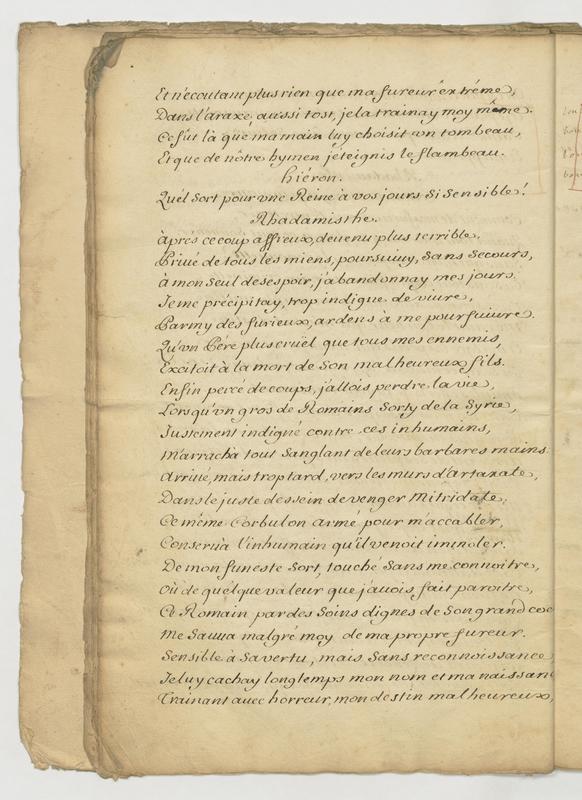 Et n'ecoutant plus rien que ma fureur extréme,
Dans l'araxe, aussi tost, je la trainay moy même.
Ce fût là que ma main luy choisit un tombeau,
Et que de nôtre hymen jeteignis le flambeau.
hiéron.
Quél sort pour une Reine à vos jours si sensible!
Rhadamisthe.
àprés ce coup affreux, devenu plus terrible,
Privé de tous les miens, poursuivy, sans secours,
à mon seul desespoir, j'abandonnay mes jours.
Je me précipitay, trop indigne de vivre,
Parmy des furieux, ardens à me poursuivre.
Qu'un Pére plus cruël que tous mes ennemis,
Excitoit à la mort de son malheureux fils.
Enfin percé de coups, j'allois perdre la vie,
Lorsqu'un gros de Romains sorty de la Syrie,
Justement indigné contre ces inhumains,
M'arracha tout sanglant de leurs barbares mains.
Arrivé, mais trop tard, vers les murs d'artaxate,
Dans le juste dessein de venger Mitridate,
Ce même Corbulon armé pour m'accabler,
Conserva l'inhumain qu'il venoit immoler.
De mon funeste sort, touché sans me connoitre,
Où de quélque valeur que j'avois fait paroitre,
Ce Romain par des soins dignes de son grand coe
Me sauva malgré moy de ma propre fureur.
Sensible à sa vertu, mais sans reconnoissance
Je luy cachay longtemps mon nom et ma naissan
Trainant avec horreur, mon destin malheureux,